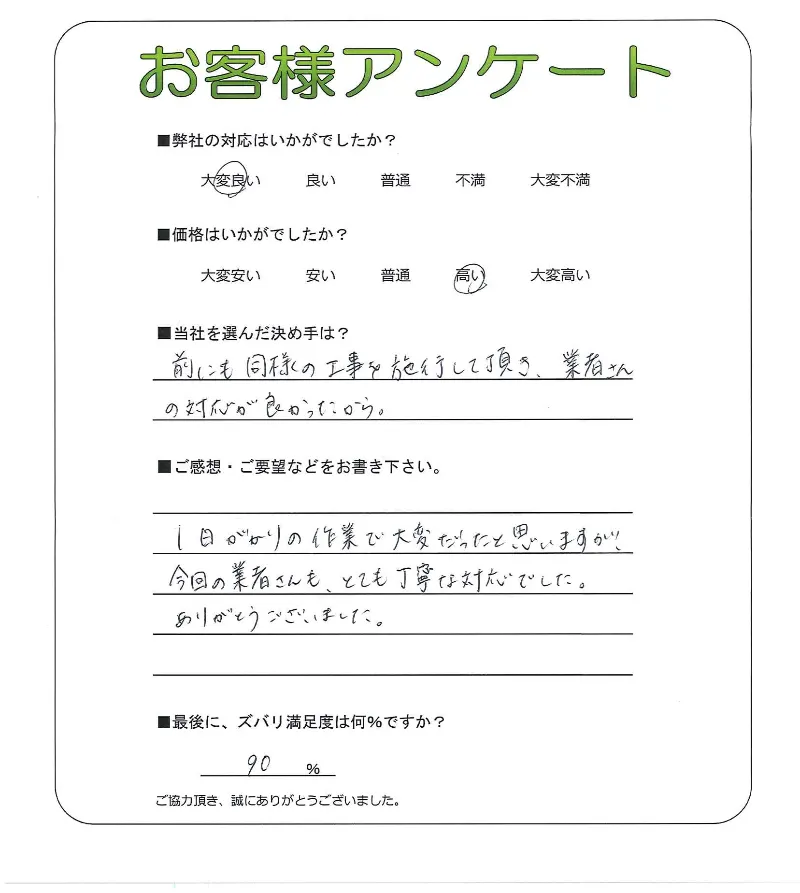 お客様アンケート
■弊社の対応はいかがでしたか？
大変良い 良い 普通 不満 大変不満
■価格はいかがでしたか？
大変安い 安い 普通 高い 大変高い
■当社を選んだ決め手は？
前にも同様の工事を施行して頂き、業者さん
の対応が良かったから。
■ご感想・ご要望などをお書き下さい。
1日がかりの作業で大変だったと思いますが、
今回の業者さんも、とても丁寧な対応でした。
ありがとうございました。
■最後に、ズバリ満足度は何％ですか？
90 ％
ご協力頂き、誠にありがとうございました。